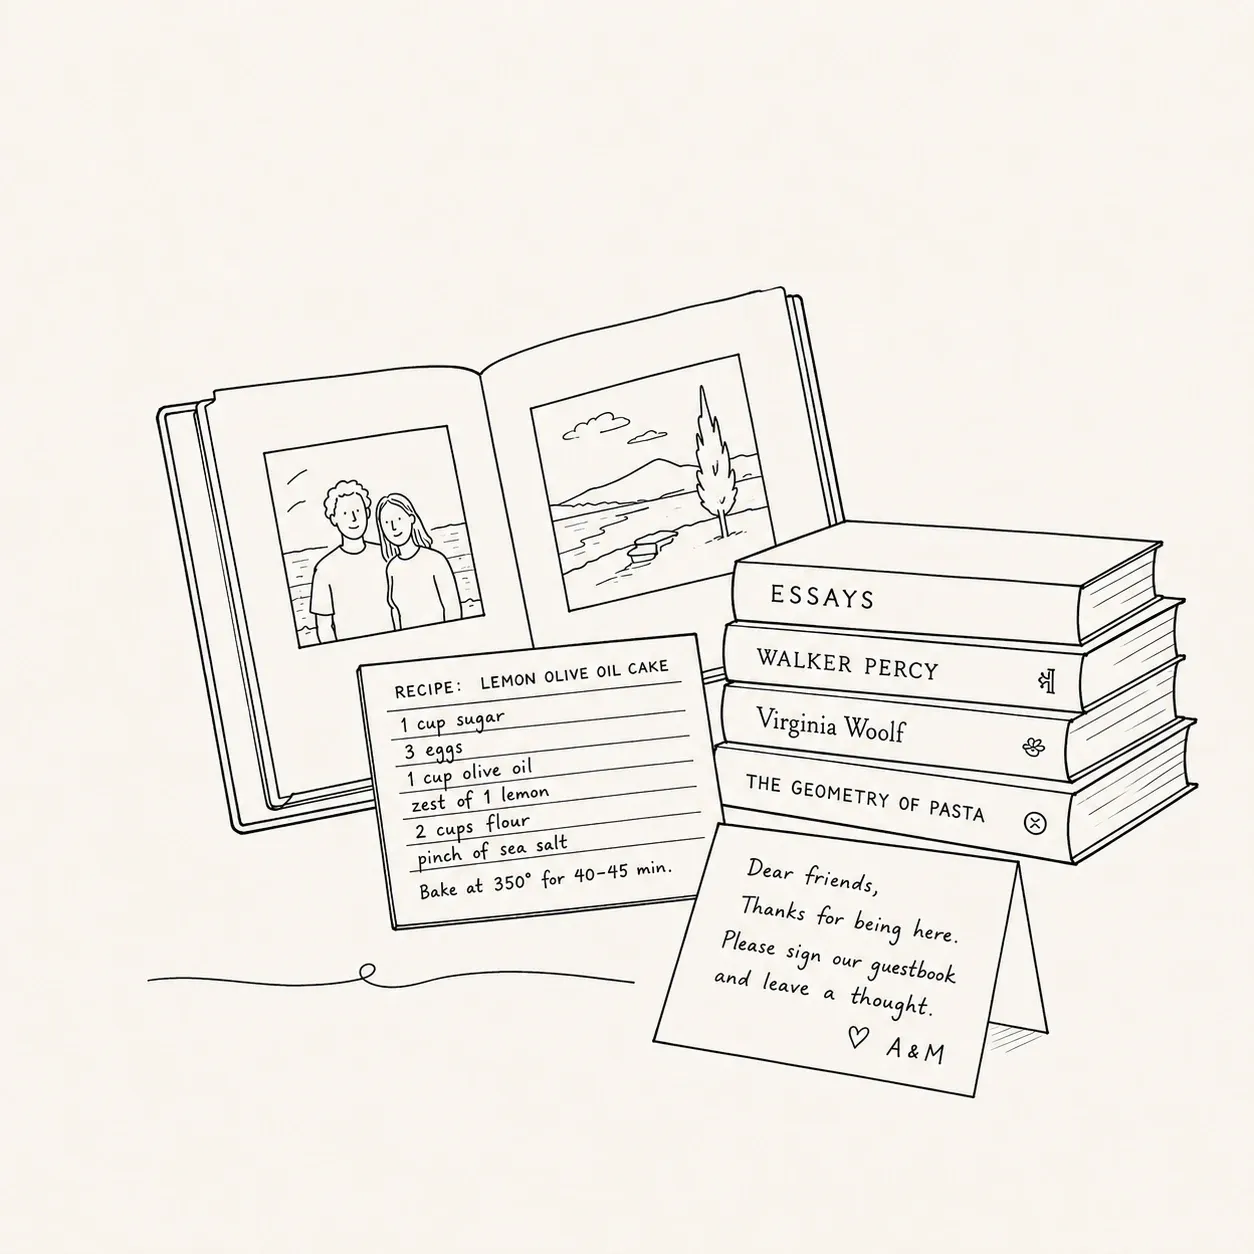 RECIPE: LEMON OLIVE OIL CAKE
1 cup sugar
3 eggs
1 cup olive oil
zest of 1 lemon
2 cups flour
pinch of sea salt
Bake at 350° for 40–45 min.
ESSAYS
WALKER PERCY
Virginia Woolf
THE GEOMETRY OF PASTA
Dear friends,
Thanks for being here.
Please sign our guestbook
and leave a thought.
♡ A & M